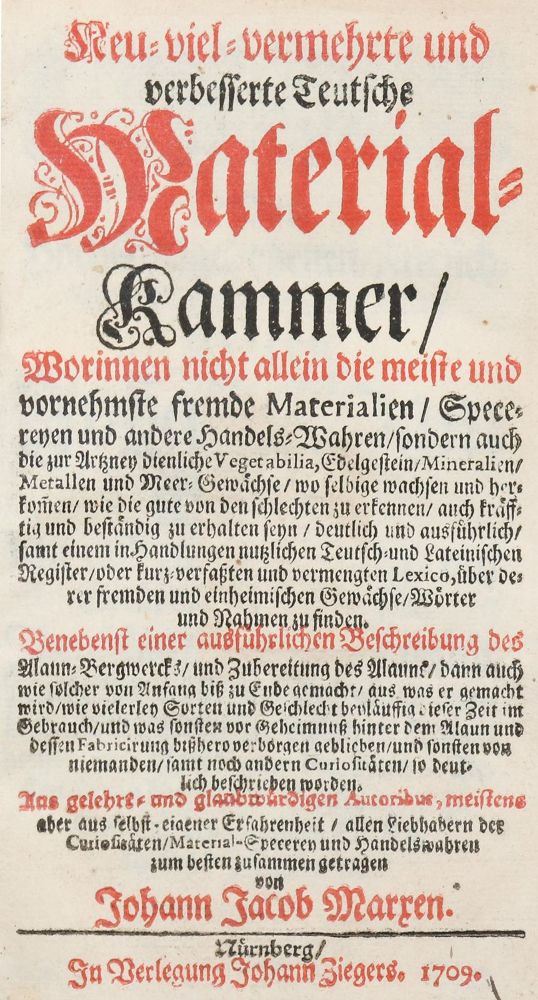 Neu-viel-vermehrte und
verbesserte Teutsche
Material-
Kammer/
Worinnen nicht allein die meiste und
vornehmste fremde Materialien / Spece-
reyen und andere Handels-Wahren/sondern auch
die zur Artzney dienliche Vegetabilia, Edelgestein/Mineralien/
Metallen und Meer-Gewächse/ wo selbige wachsen und her-
kom̅en/ wie die gute von den schlechten zu erkennen/ auch kräff-
tig und beständig zu erhalten seyn / deutlich und ausführlich/
samt einem in Handlungen nutzlichen Teutsch-und Lateinischen
Register/oder kurz-verfaßten und vermengten Lexico, über de-
rer fremden und einheimischen Gewächse/Wörter
und Nahmen zu finden.
Benebenst einer ausführlichen Beschreibung des
Alaun-Bergwercks/ und Zubereitung des Alauns/ dann auch
wie solcher von Anfang biß zu Ende gemacht/ aus was er gemacht
wird/wie vielerley Sorten und Geschlecht beyläuffig dieser Zeit im
Gebrauch/und was sonsten vor Geheimnuß hinter dem Alaun und
dessen Fabricirung bißhero verborgen geblieben/und sonsten von
niemanden/samt noch andern Curiositäten/ so deut-
lich beschrieben worden.
Aus gelehrt- und glaubwürdigen Autoribus, meistens
aber aus selbst-eigener Erfahrenheit / allen Liebhabern der
Curiositäten/Material-Specerey und Handelswahren
zum besten zusammen getragen
von
Johann Jacob Marxen.
Nürnberg/
In Verlegung Johann Ziegers. 1709.